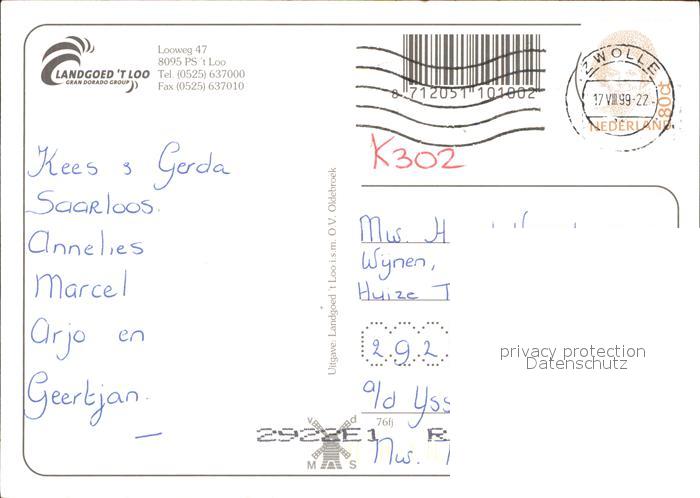 LANDGOED 'T LOO
GRAN DORADO GROUP
Looweg 47
8095 PS 't Loo
Tel. (0525) 637000
Fax (0525) 637010
8 712051 101002
ZWOLLE
17 VIII 99-22
80ct
NEDERLAND
K302
Kees & Gerda
Saarloos.
Annelies
Marcel
Arjo en
Geertjan.
Uitgave: Landgoed 't Loo i.s.m. O.V. Oldebroek
Mw. H
Wijnen,
Huize T
292
a/d Yss
76fj
2922E1 R
v d
M A S
Nw. T
privacy protection
Datenschutz